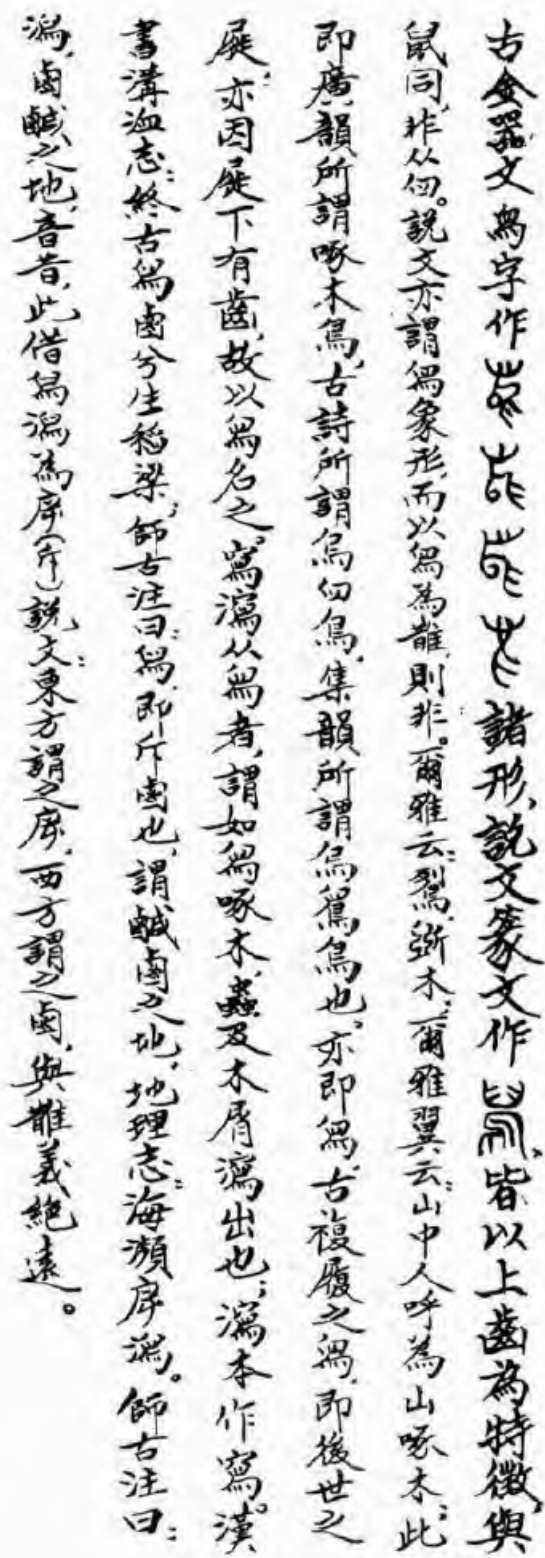 古金器文舄字作諸形，說文篆文作，皆以上齒為特徵，與
鼠同，非从臼。說文亦謂舄象形，而以舄為誰，則非。爾雅云：鴷，斲木，爾雅翼云：山中人呼為山啄木；此
即廣韻所謂啄木鳥，古詩所謂鳥，集韻所謂鳥也。亦即舄，古複履之舄，即後世之
屣，亦因屣下有齒，故以舄名之。寫瀉从舄者，謂如舄啄木，蟲及木屑瀉出也；瀉本作寫。漢
書溝洫志：終古舄鹵兮生稻粱，師古注曰：舄，即斥鹵也，謂鹹鹵之地，地理志：海瀕斥瀉。師古注曰：
瀉，鹵鹹之地，音昔，此借舄瀉為㡿（斥）說文：東方謂之㡿，西方謂之鹵，與誰義絕遠。